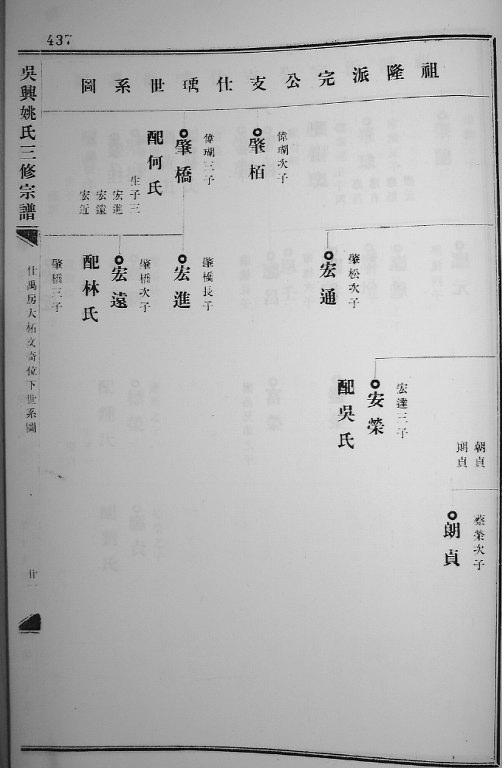 437
祖隆派完公支仕瑀世系圖
偉瑚次子
肇栢
偉瑚三子
肇橋
配何氏
生子三
宏進
宏遠
宏近
肇松次子
宏通
肇橋長子
宏進
肇橋次子
宏遠
配林氏
肇橋三子
宏達三子
安榮
配吳氏
朝貞
朗貞
榮次子
朗貞
吳興姚氏三修宗譜
仕萬房大柘文奇位下世系圖